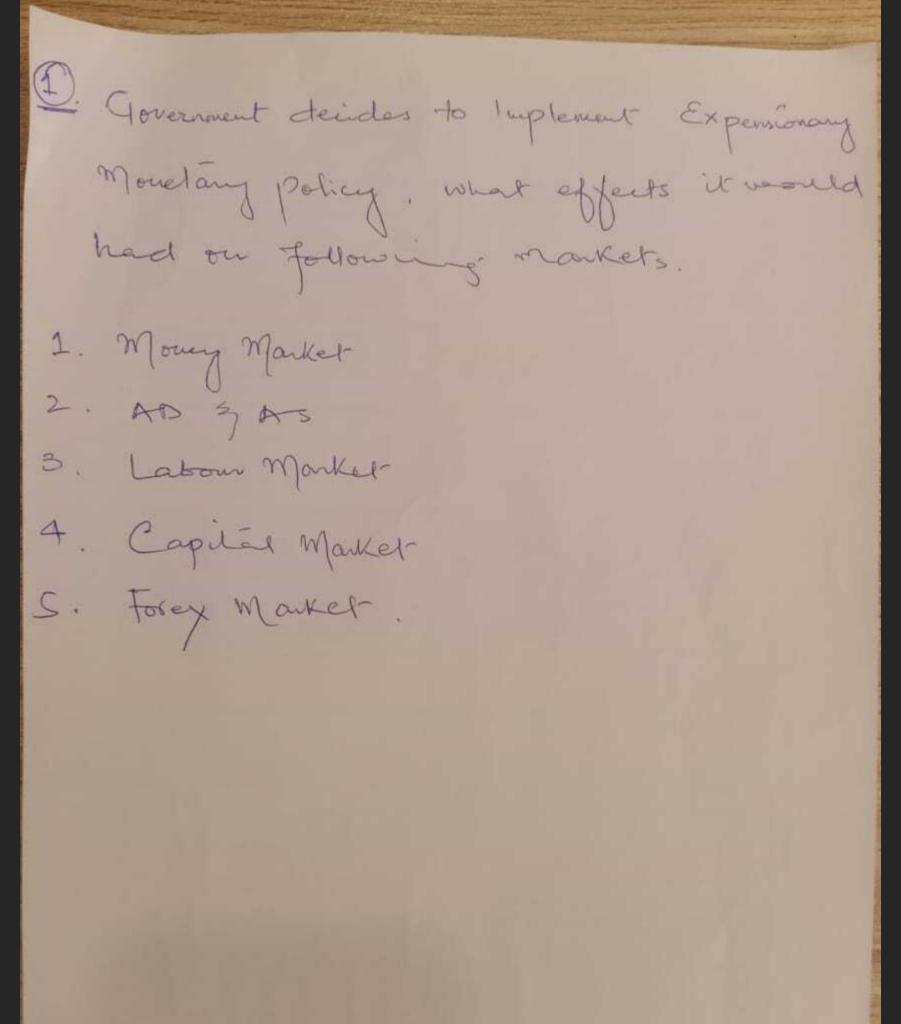 1. Government decides to Implement Expensionary
Monetary policy, what effects it would
had on following markets.
1. Money Market
2. AD & AS
3. Labour Market
4. Capital Market
5. Forex Market.